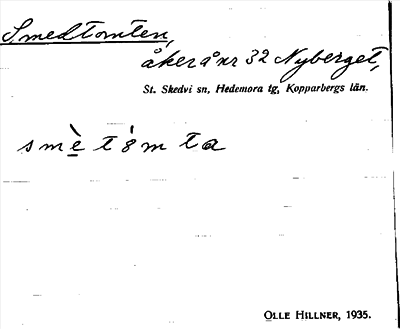 Smedtomten,
åker å nr 32 Nyberget,
St. Skedvi sn, Hedemora tg, Kopparbergs län.
smè̲ tò̀mta
OLLE HILLNER, 1935.